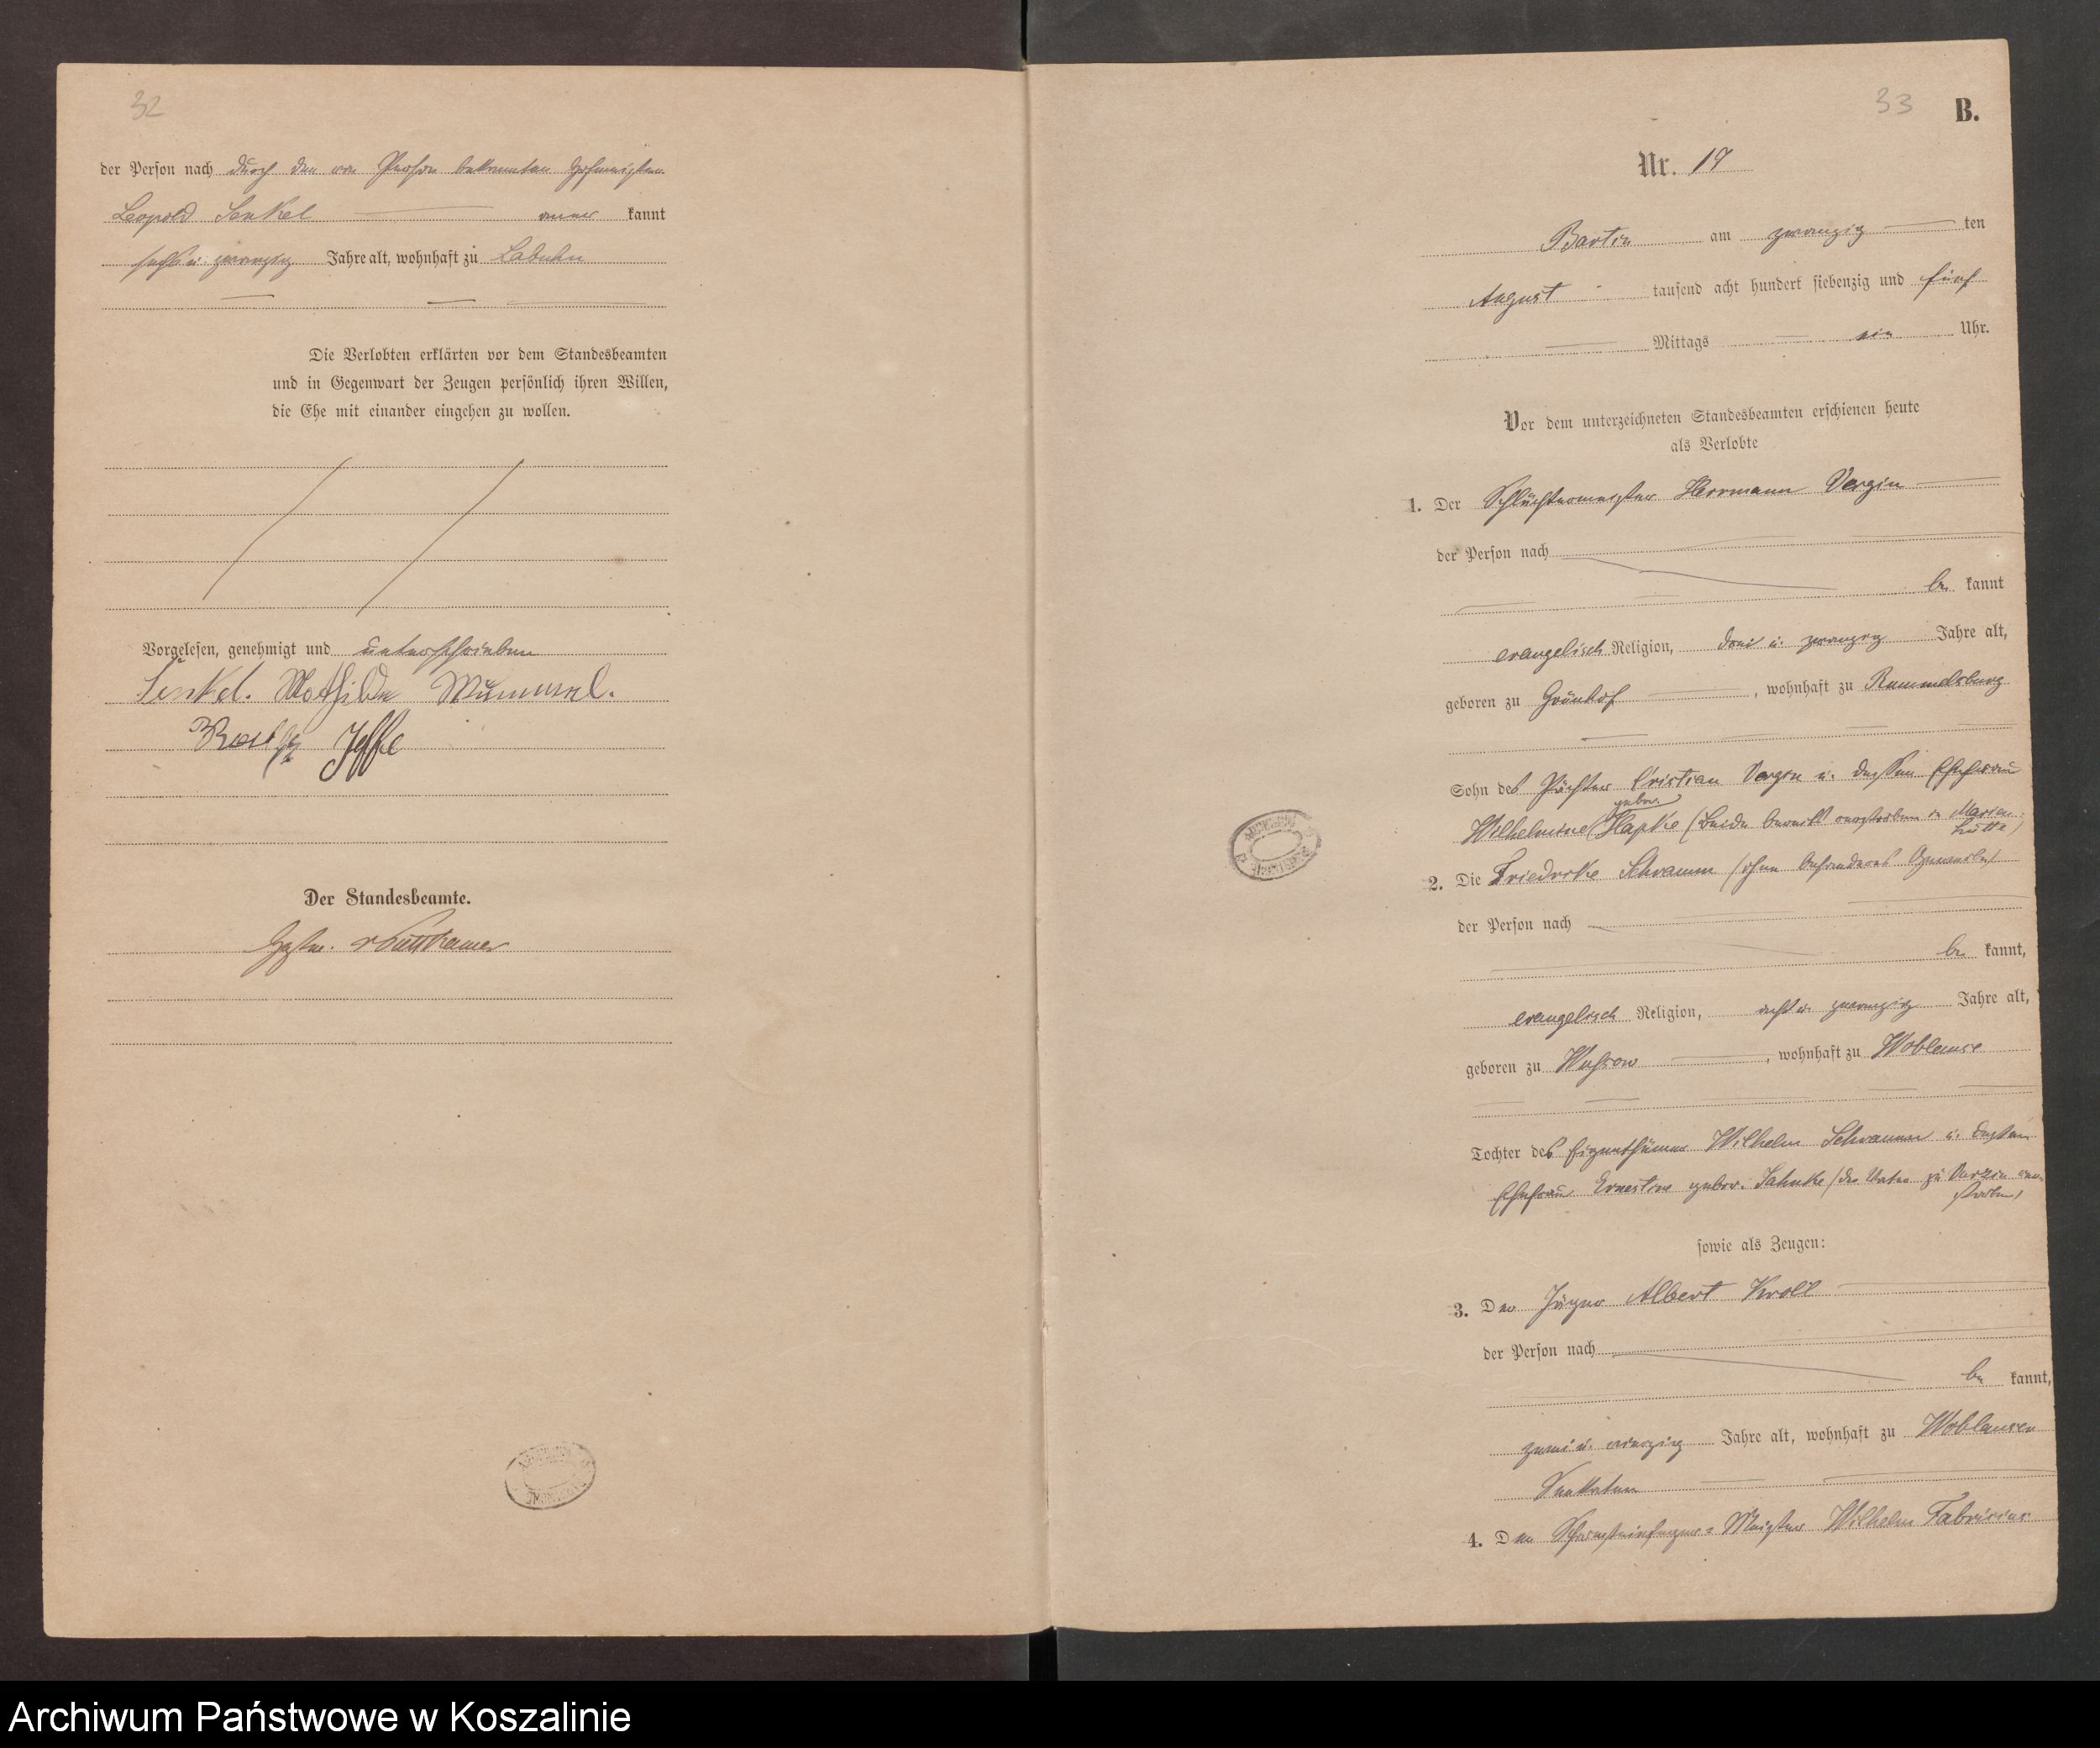 32
der Person nach durch den von Person bekannten Hofmeister
Leopold Senkel anner kannt
sechs u. zwanzig Jahre alt, wohnhaft zu Labuhn
Die Verlobten erklärten vor dem Standesbeamten
und in Gegenwart der Zeugen persönlich ihren Willen,
die Ehe mit einander eingehen zu wollen.
Vorgelesen, genehmigt und unterschrieben
Senkel. Mathilde Mummel.
Der Standesbeamte.
v Puttkamer
33 B.
Nr. 19
Bartin am zwanzig ten
August tausend acht hundert siebenzig und fünf
Mittags ein Uhr.
Vor dem unterzeichneten Standesbeamten erschienen heute
als Verlobte
1. Der Herrmann Vergin
der Person nach
be kannt
evangelisch Religion, drei u. zwanzig Jahre alt,
geboren zu Grünhof, wohnhaft zu Rummelsburg
Sohn des Pächter Cristian Vergin u. dessen Ehefrau
Wilhelmine gebor. Hapke (beide bereits verstorben in Marien-
hütte)
2. Die Friedrike Schramm (ohne besonderes Gewerbe)
der Person nach
be kannt,
evangelisch Religion, acht u. zwanzig Jahre alt,
geboren zu Wussow, wohnhaft zu Woblanse
Tochter des Eigenthümer Wilhelm Schramm u. dessen
Ehefrau Ernestine gebor. Jahnke (der Vater zu Varzin ver-
storben)
sowie als Zeugen:
3. Der Jäger Albert Kroll
der Person nach
be kannt,
zwei u. vierzig Jahre alt, wohnhaft zu Woblanser
4. Der Schornsteinfeger-Meister Wilhelm Fabricius
Archiwum Państwowe w Koszalinie